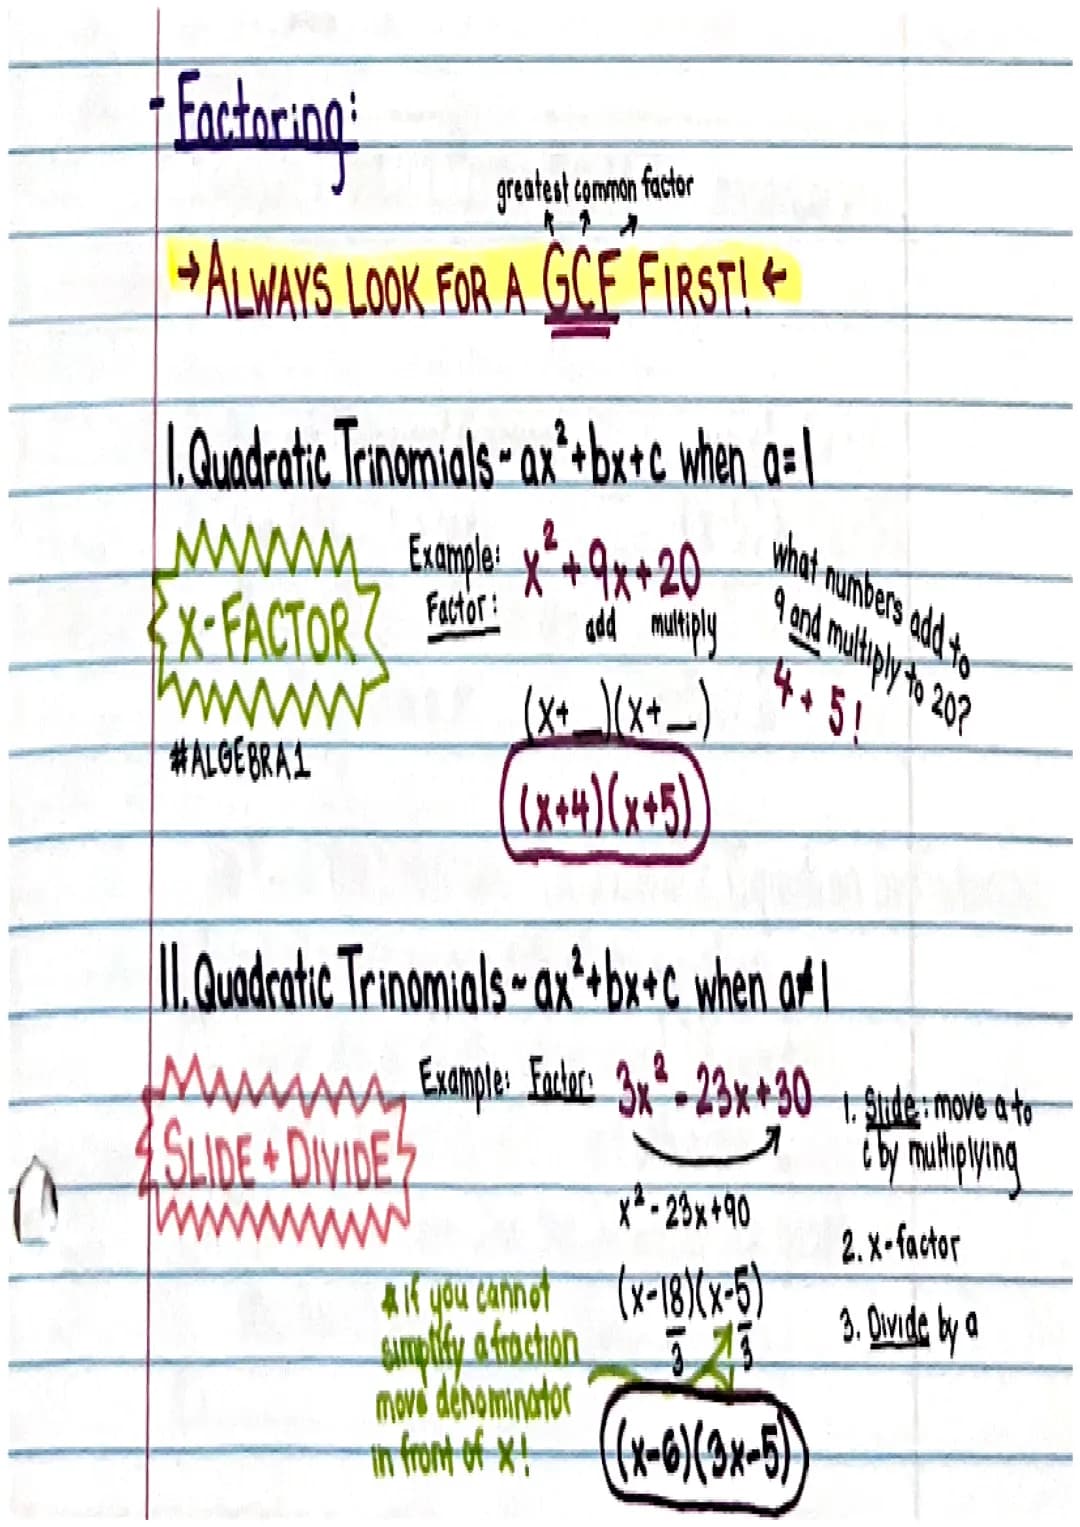 - Factoring:
greatest common factor
→ ALWAYS LOOK FOR A GCF FIRST! ←
I. Quadratic Trinomials ~ ax²+bx+c when a=1
X-FACTOR
#ALGEBRA1
Example: x²+9x+20
Factor:
add multiply
(x+_)(x+_)
(x+4)(x+5)
what numbers add to
9 and multiply to 20?
4+5!
II. Quadratic Trinomials ~ ax²+bx+c when a≠1
SLIDE + DIVIDE
Example: Factor: 3x²-23x+30
x²-23x+90
(x-18)(x-5)
3 3
(x-6)(3x-5)
1. Slide: move a to
c by multiplying
2. x-factor
3. Divide by a
* if you cannot
simplify a fraction
move denominator
in front of x!